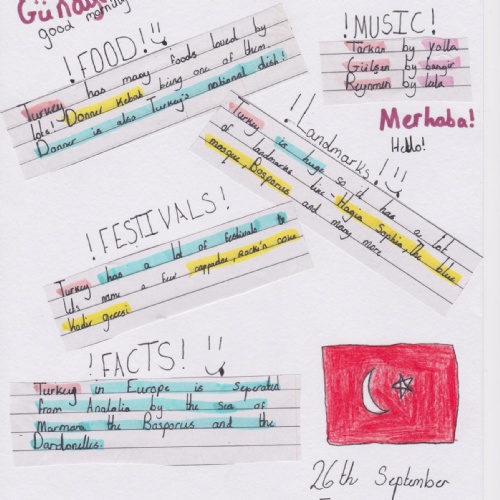 Günay
good morning
!FOOD!
Turkey has many foods loved by
lots! Donner Kebab being one of them.
Donner is also Turkey's national dish!
!MUSIC!
Tarkan by Yolla
Gülşen by bangir
Reynmen by Lela
Merhaba!
Hello!
!Landmarks!
Turkey is huge so it has a lot
of landmarks like - Hagia Sophia, The blue
mosque, Bosporus and many more
!FESTIVALS!
Turkey has a lot of festivals
lets name a few cappadox, Rock'n coke
Kadir gecesi
!FACTS!
Turkey in Europe is seperated
from Anatolia by the sea of
Marmara the Bosporus and the
Dardanelles.
26th September